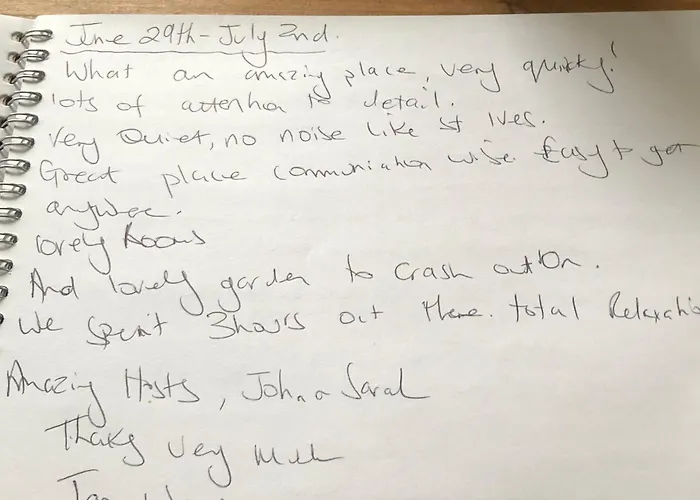 June 29th - July 2nd.
What an amazing place, very quirky!
lots of attention to detail.
Very Quiet, no noise like St Ives.
Great place communication wise. Easy to get
anywhere.
lovely Rooms
And lovely garden to crash out on.
We spent 3 hours out there. total Relaxatio
Amazing Hosts, John a Sarah
Thanks very much